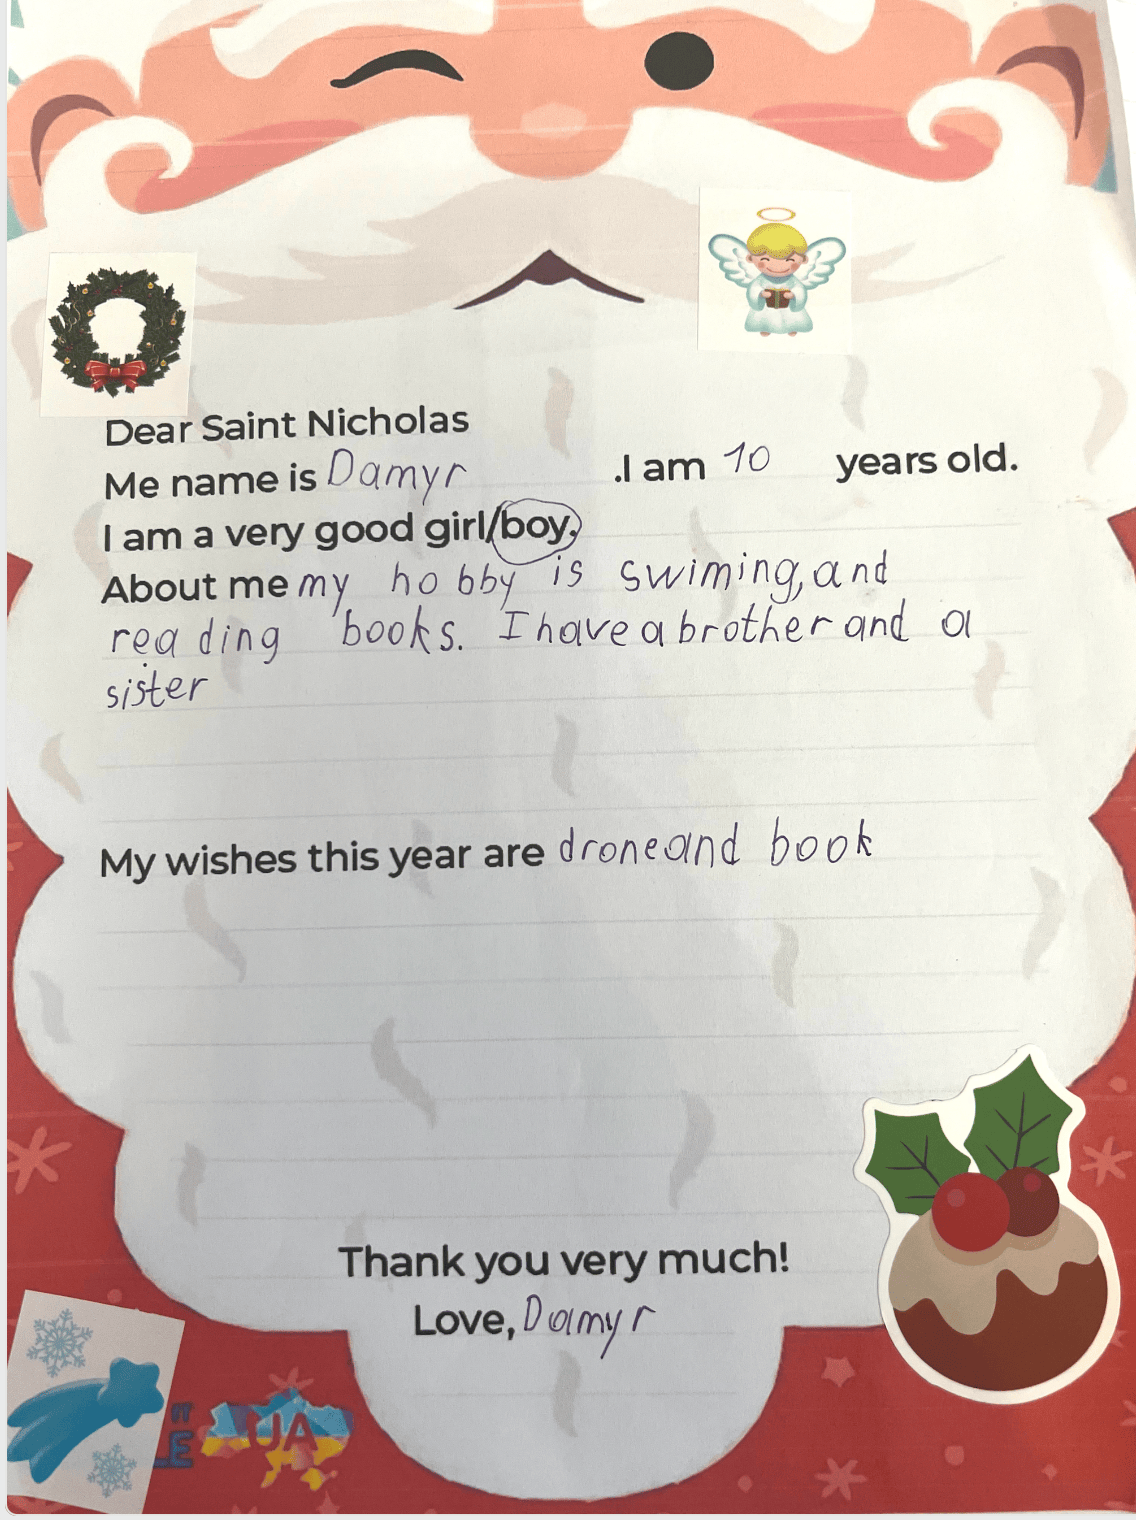 Dear Saint Nicholas
Me name is Damyr .I am 10 years old.
I am a very good girl/boy.
About me my hobby is swiming, and
reading books. I have a brother and a
sister
My wishes this year are drone and book
Thank you very much!
Love, Damyr
UA